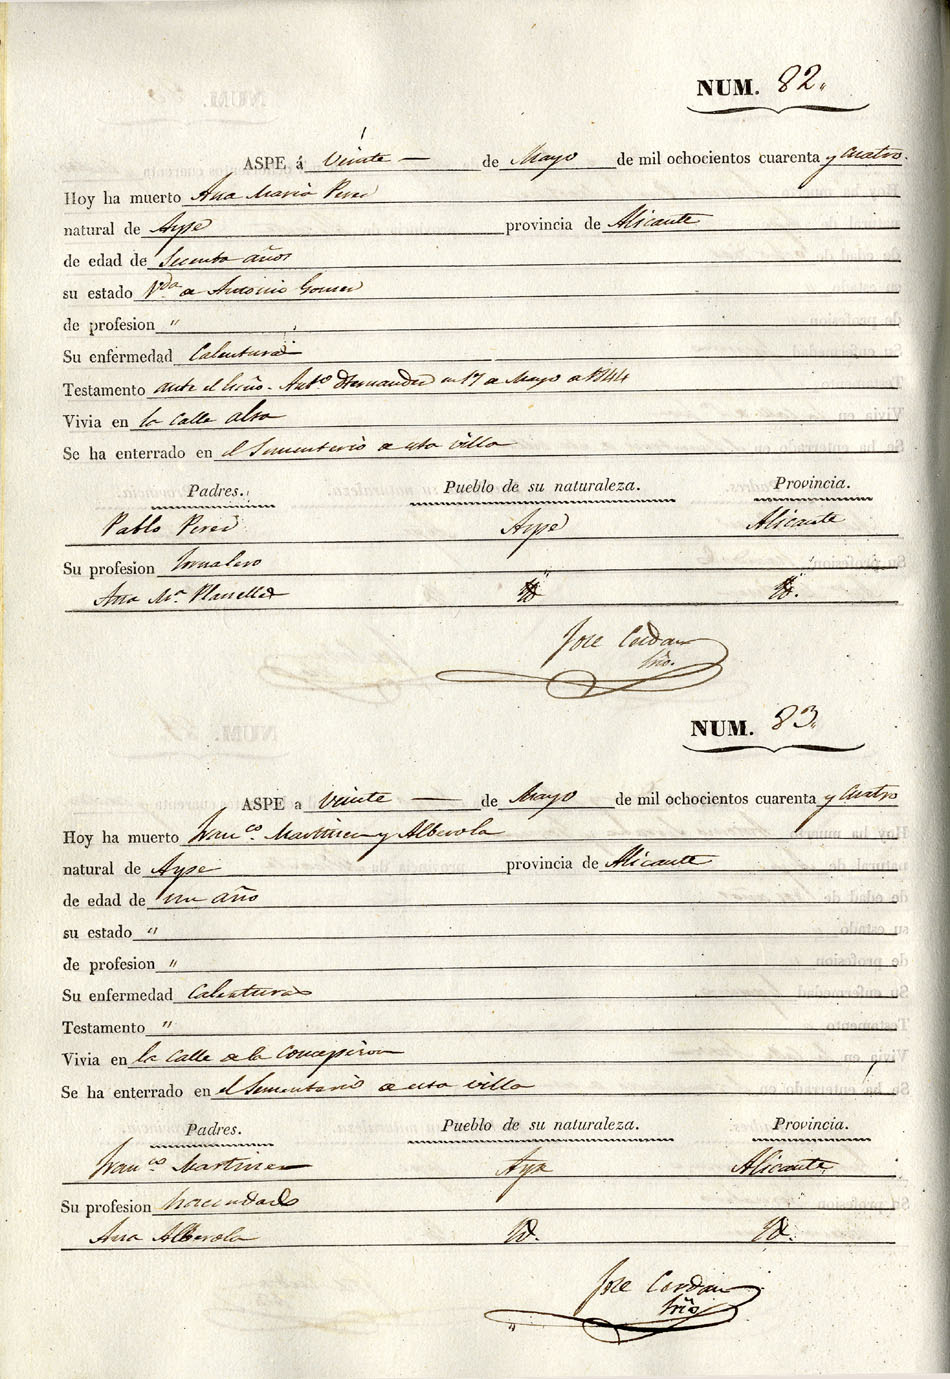 NUM. 82.
ASPE á Veinte — de Mayo de mil ochocientos cuarenta y Cuatro.
Hoy ha muerto Ana Maria Perez
natural de Aspe provincia de Alicante
de edad de Secenta años
su estado Vda de Antonio Gomez
de profesion "
Su enfermedad Calentura
Testamento ante el Esño. Anto Hernandez en 17 de Mayo de 1844
Vivia en la Calle alta
Se ha enterrado en el Sementerio de esta villa
Padres. Pueblo de su naturaleza. Provincia.
Pablo Perez Aspe Alicante
Su profesion Jornalero
Ana Ma. Planelles Yd Yd.
Jose Cerdan
Srio.
NUM. 83.
ASPE a Veinte — de Mayo de mil ochocientos cuarenta y Cuatro
Hoy ha muerto Franco Martinez y Alberola
natural de Aspe provincia de Alicante
de edad de un año
su estado "
de profesion "
Su enfermedad Calenturas
Testamento "
Vivia en la Calle de la Concepcion
Se ha enterrado en el Sementerio de esta villa
Padres. Pueblo de su naturaleza. Provincia.
Franco Martinez Aspe Alicante
Su profesion hacendado
Ana Alberola Yd. Yd.
Jose Cerdan
Srio